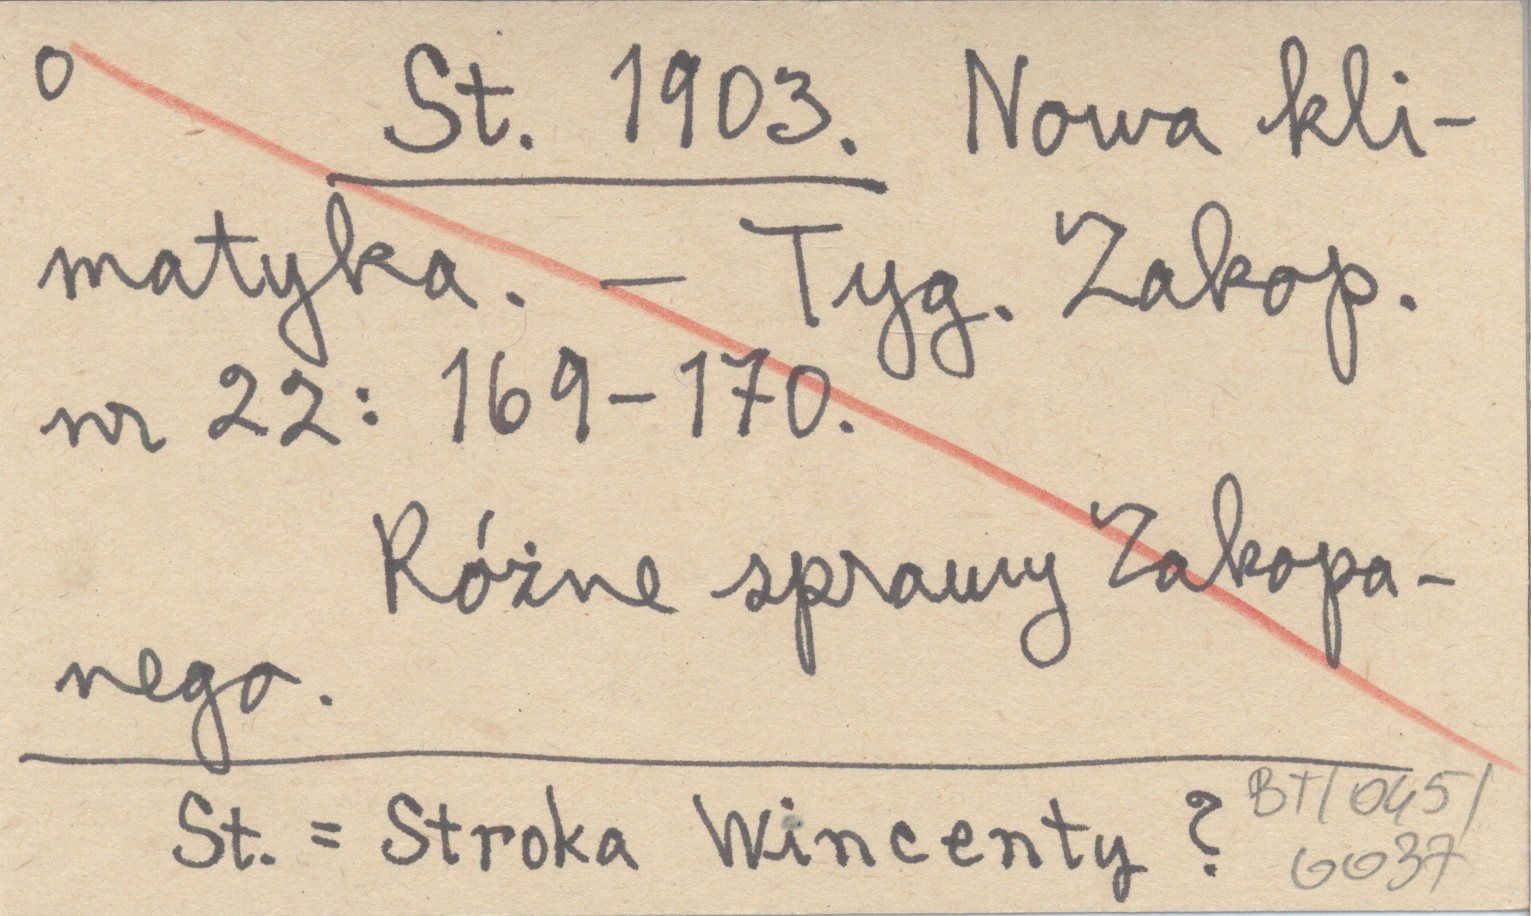 o St. 1903. Nowa kli-
matyka. — Tyg. Zakop.
nr 22: 169-170.
Różne sprawy Zakopa-
nego.
St. = Stroka Wincenty ?
BT/045/
0037